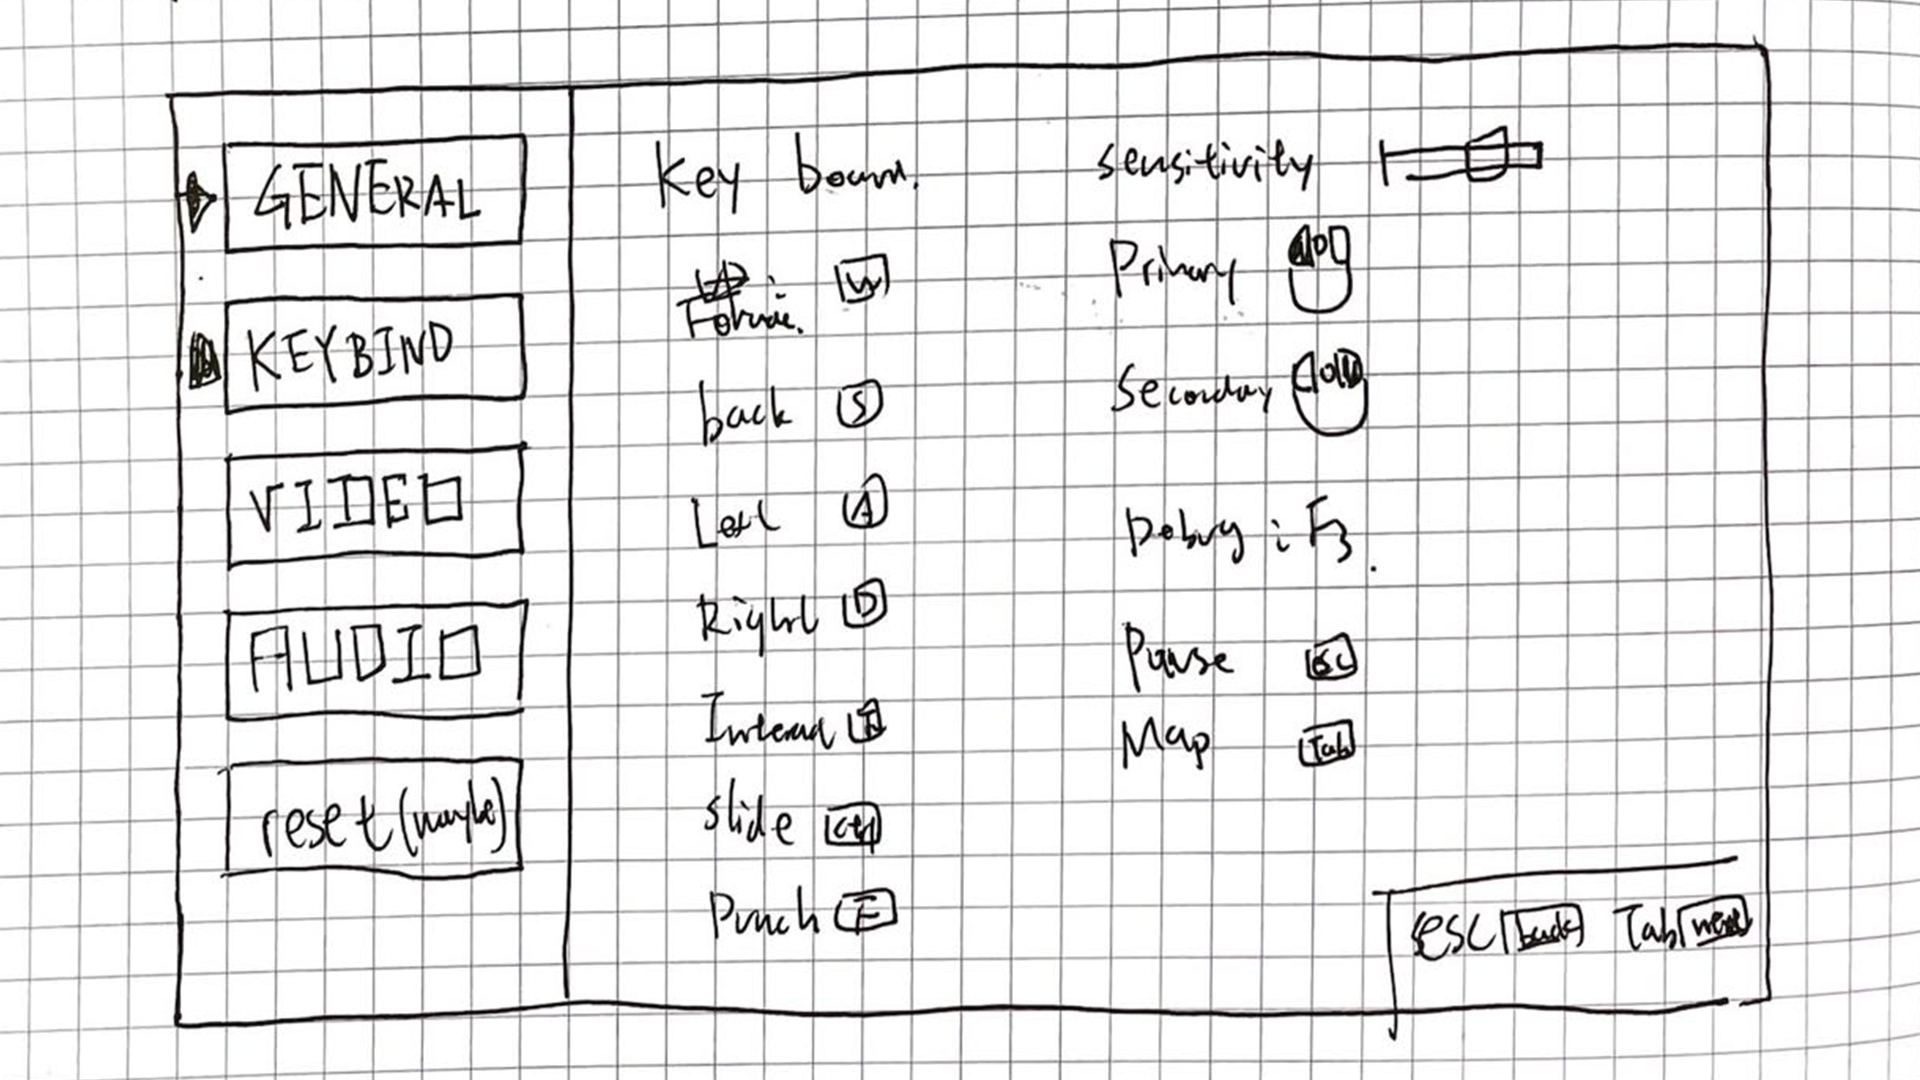 GENERAL
KEYBIND
VIDEO
AUDIO
reset (maybe)
Key
W
back S
A
Right D
slide ctrl
Punch F
sensitivity
Primary
Secondary
Debug : F3.
Pause esc
Map Tab
esc back Tab